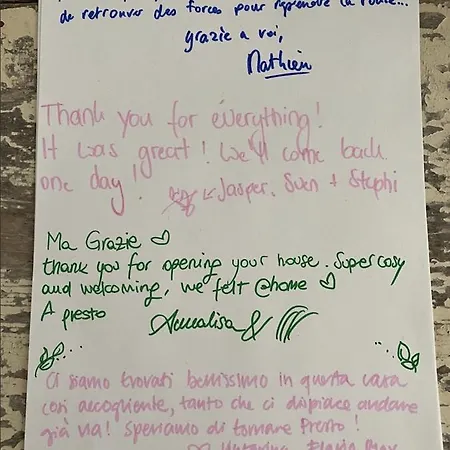 de retrouver des forces pour reprendre la route...
grazie a voi,
Mathieu
Thank you for everything!
It was great! We'll come back
one day! Jasper, Sven + Stephi
Ma Grazie ♡
thank you for opening your house. Super cosy
and welcoming, we felt @home ♡
A presto
Annalisa &
Ci siamo trovati benissimo in questa casa
così accogliente, tanto che ci dispiace andare
già via! Speriamo di tornare presto!